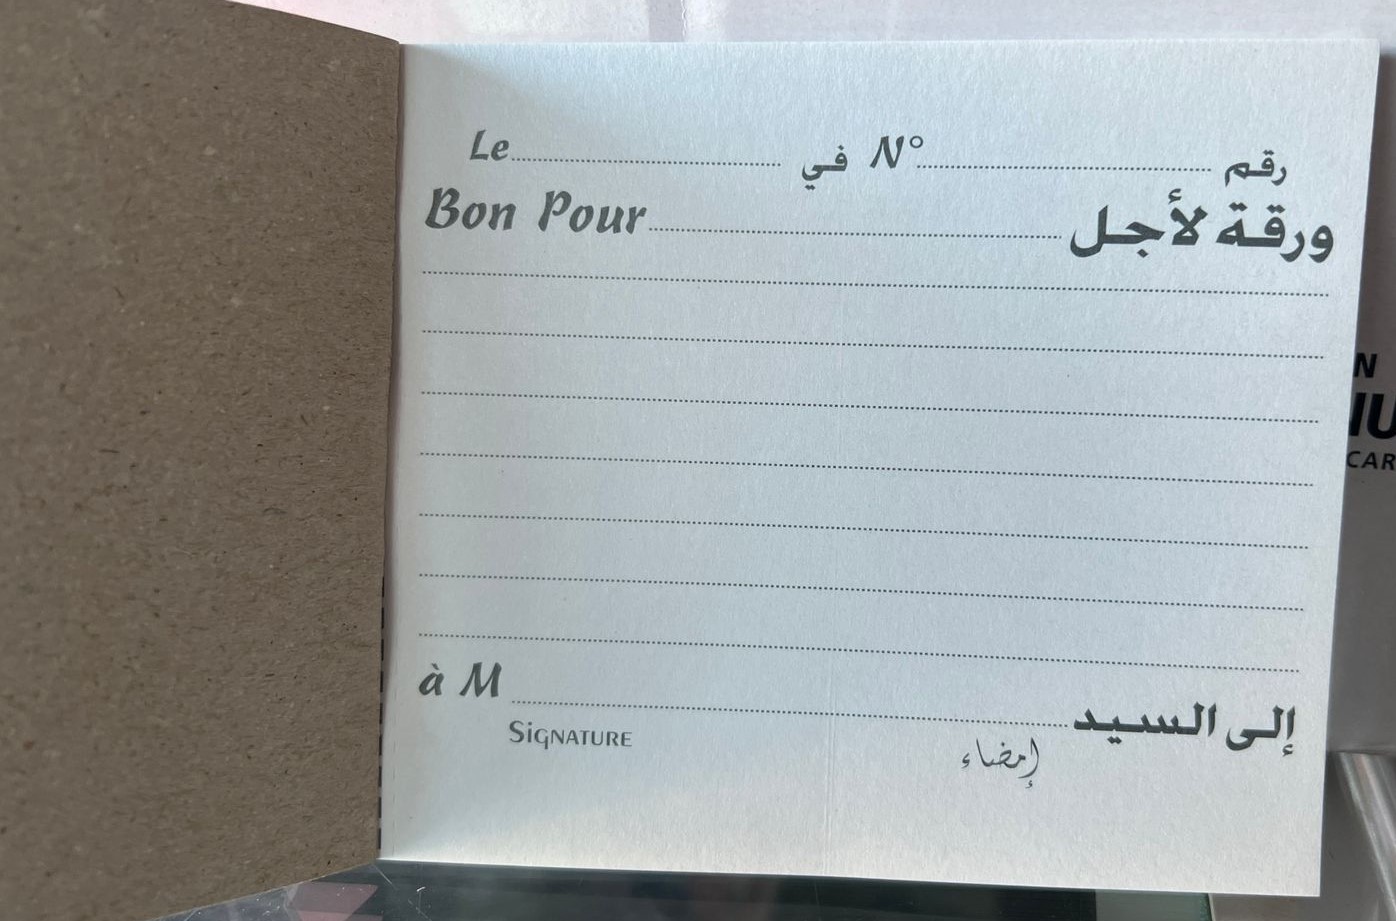 Le في N° رقم
Bon Pour ورقة لأجل
à M إلى السيد
SIGNATURE إمضاء
N
CAR